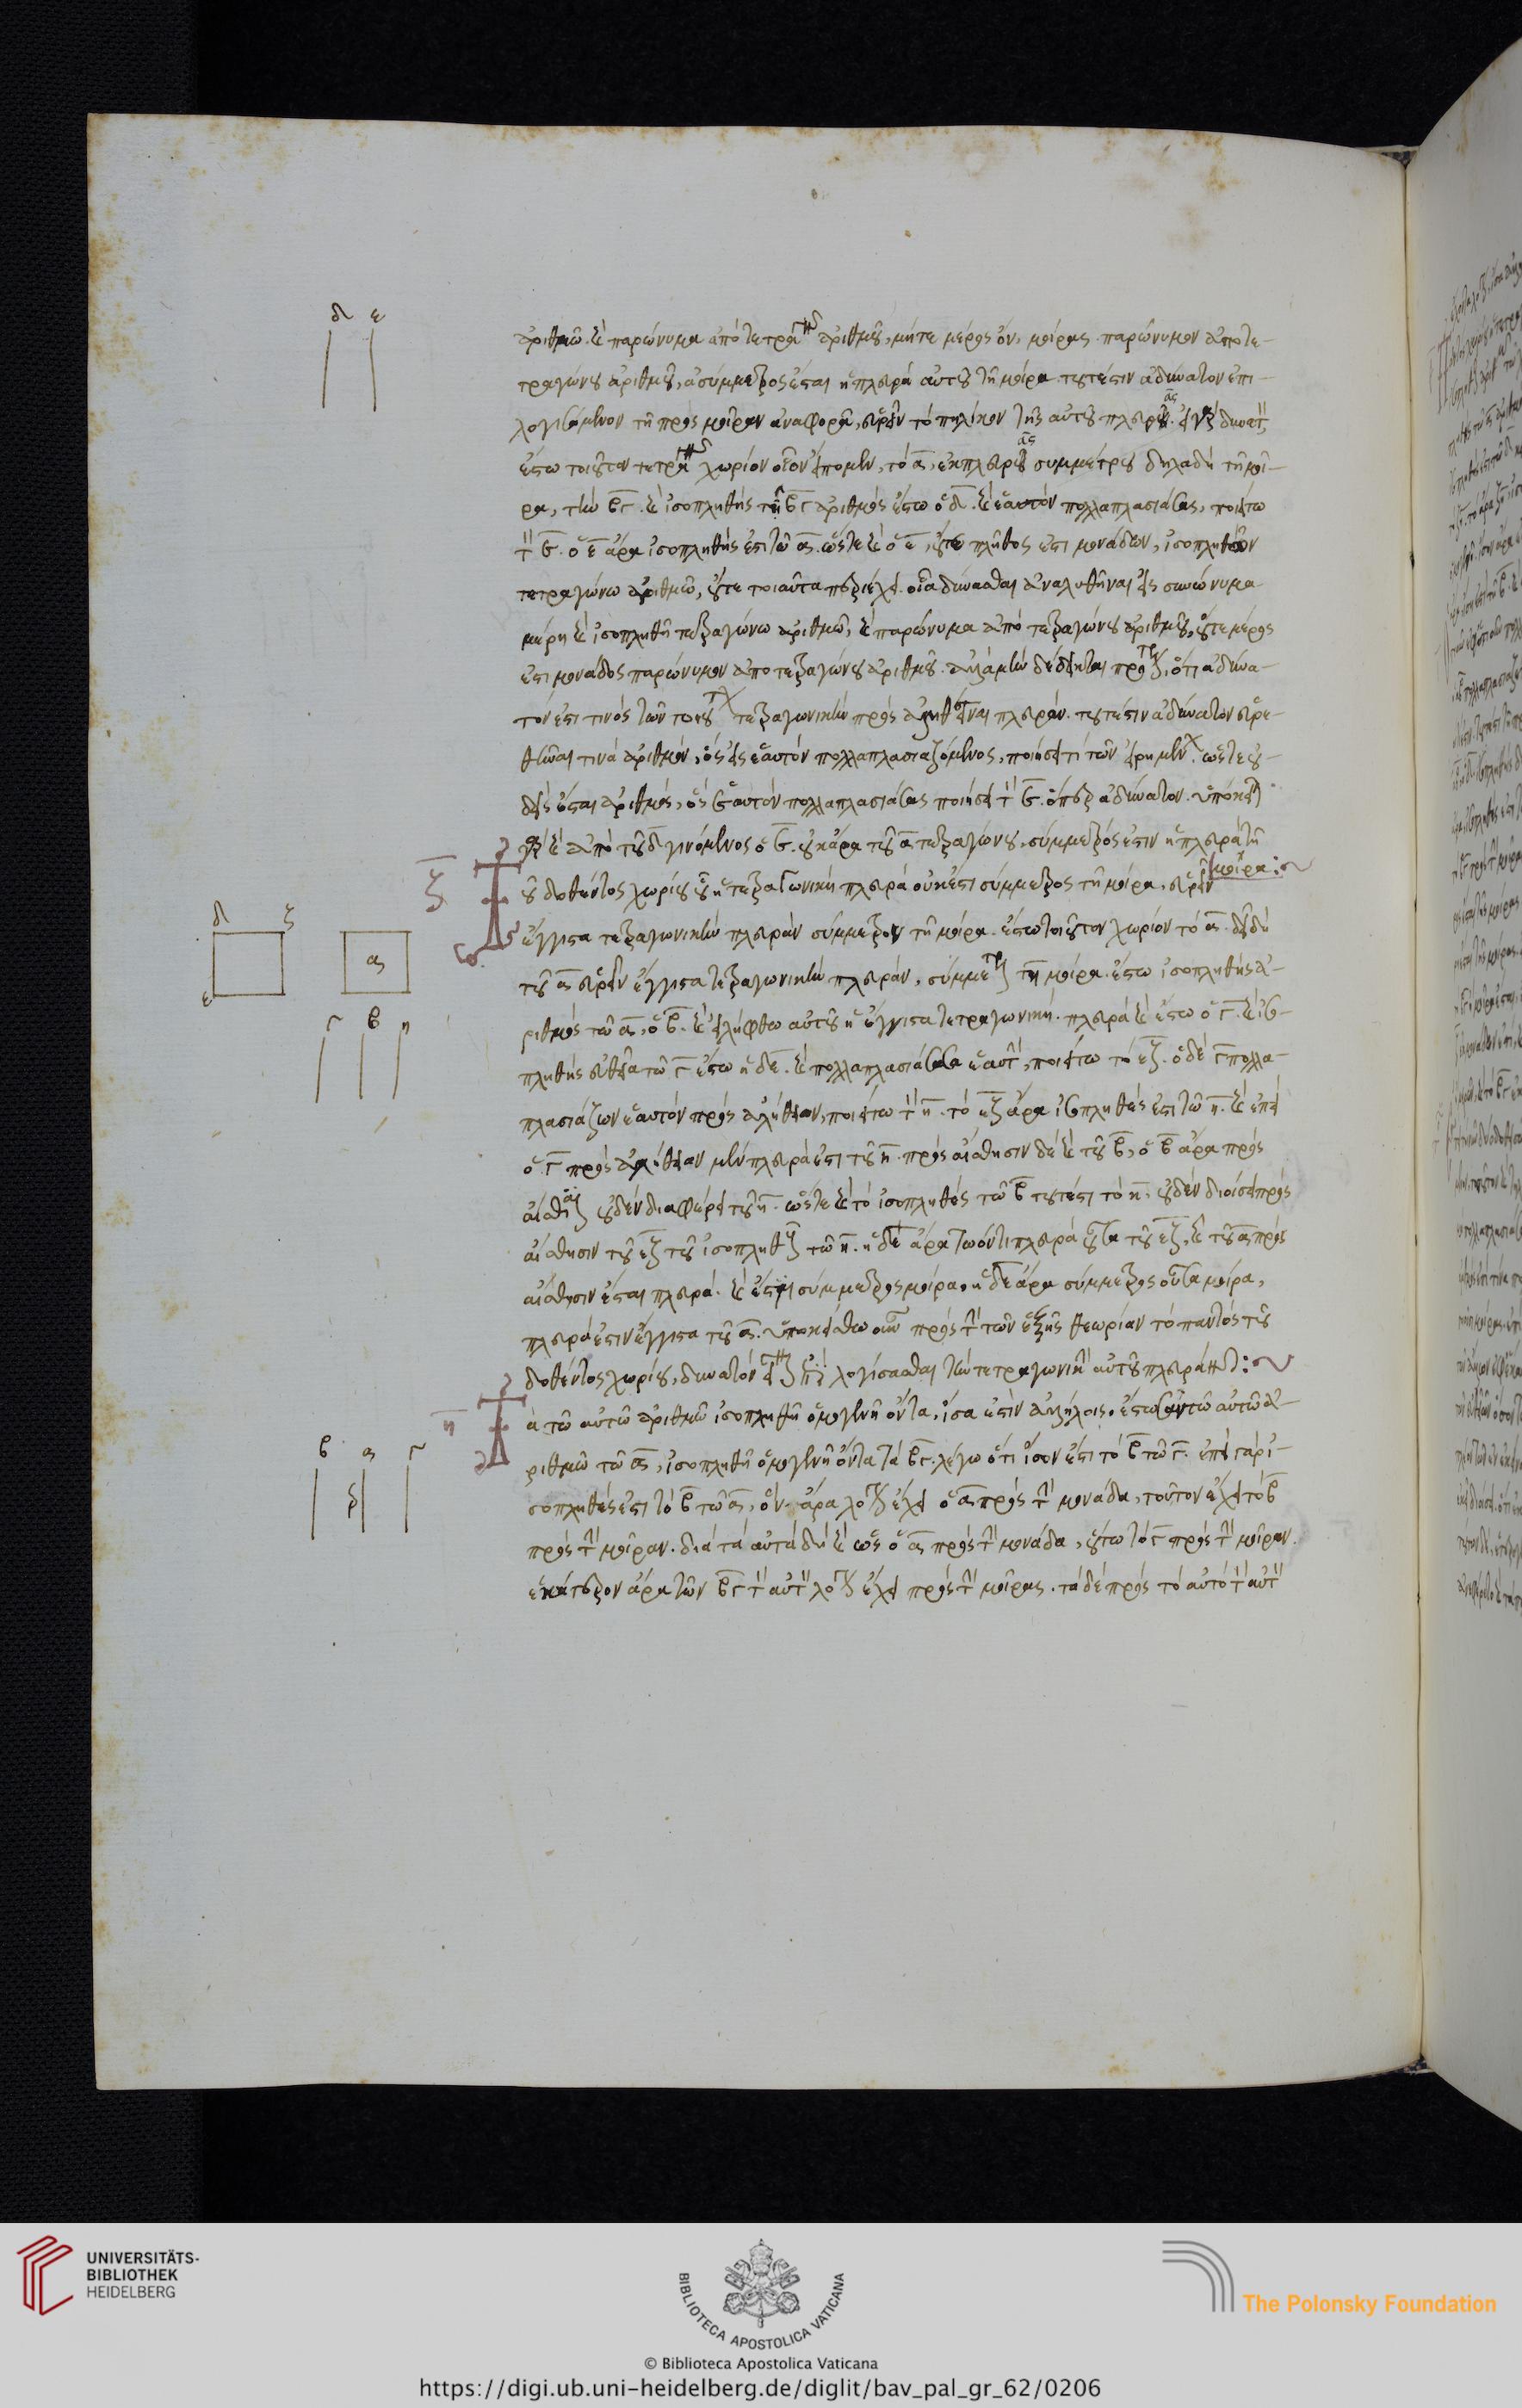 δ ε
ἀριθμῶ. καὶ παρώνυμα ἀπὸ τετραγώνου ἀριθμοῦ, μήτε μέρος ὂν, μοίρας παρώνυμον ἀπὸ τε-
τραγώνου ἀριθμοῦ, ἀσύμμετρος ἔσται ἡ πλευρὰ αὐτοῦ τῆ μοίρα. τουτέστιν ἀδύνατον ἐπι-
λογισάμενον τῆ πρὸς μοῖραν ἀναφορᾶ, εὑρεῖν τὸ πηλίκον τῆς αὐτοῦ πλευρᾶς. εἰ γὰρ δυνατὸν
ἔστω τοιοῦτον τετράγωνον χωρίον οἷον εἴπομεν, τὸ α, ἐκ πλευρᾶς συμμέτρου δηλαδὴ τῆ μοί-
ρα, τῆς βγ. καὶ ἰσοπληθὴς τῆ βγ ἀριθμὸς ἔστω ὁ δ. καὶ ἑαυτὸν πολλαπλασιάσας, ποιείτω
τὸν ε. ὁ ε ἄρα ἰσοπληθής ἐστι τῶ α. ὥστε καὶ ὁ ε, οὔτε πλῆθός ἐστι μονάδων, ἰσοπληθὲς ὂν
τετραγώνω ἀριθμῶ, οὔτε τοιαῦτα περιέχει οἷα δύνασθαι ἀναλυθῆναι εἰς συνώνυμα
μέρη καὶ ἰσοπληθῆ τετραγώνω ἀριθμῶ, καὶ παρώνυμα ἀπὸ τετραγώνου ἀριθμοῦ, οὔτε μέρος
ἐστι μονάδος παρώνυμον ἀπὸ τετραγώνου ἀριθμοῦ. ἀλλὰ μὴν δέδεικται πρότερον, ὅτι ἀδύνα-
τόν ἐστι τινὸς τῶν τοιούτων τετραγωνικὴν πρὸς ἀλήθειαν εἶναι πλευράν. τουτέστιν ἀδύνατον εὑρε-
θῆναι τινὰ ἀριθμὸν, ὃς εἰς ἑαυτὸν πολλαπλασιαζόμενος, ποιήσει τι τῶν εἰρημένων. ὥστε οὐ-
δεὶς ἔσται ἀριθμὸς, ὃς ἑαυτὸν πολλαπλασιάσας ποιήσει τὸν ε. ὅπερ ἀδύνατον. ὑπόκειται
γὰρ καὶ ἀπὸ τοῦ δ γινόμενος ὁ ε. οὐκ ἄρα τοῦ α τετραγώνου, σύμμετρός ἐστιν ἡ πλευρὰ τῆ
μοίρα:
ζ
Τοῦ δοθέντος χωρίου οὗ ἡ τετραγωνικὴ πλευρὰ οὐκ ἔστι σύμμετρος τῆ μοίρα, εὑρεῖν
ἔγγιστα τετραγωνικὴν πλευρὰν σύμμετρον τῆ μοίρα. ἔστω τοιοῦτον χωρίον τὸ α. δεῖ δὴ
δ ζ
α
ε
τοῦ α εὑρεῖν ἔγγιστα τετραγωνικὴν πλευρὰν, σύμμετρον τῆ μοίρα. ἔστω ἰσοπληθὴς ἀ-
ριθμὸς τῶ α, ὁ β. καὶ εἰλήφθω αὐτοῦ ἡ ἔγγιστα τετραγωνικὴ πλευρὰ καὶ ἔστω ὁ γ. καὶ ἰσο-
γ β η
πληθὴς εὐθεῖα τῶ γ ἔστω ἡ δε. καὶ πολλαπλασιάσασα ἑαυτὴν, ποιείτω τὸ εζ. ὁ δὲ γ πολλα-
πλασιάζων ἑαυτὸν πρὸς ἀλήθειαν, ποιείτω τὸν η. τὸ εζ ἄρα ἰσοπληθές ἐστι τῶ η. καὶ ἐπεὶ
ὁ γ πρὸς ἀλήθειαν μὲν πλευρά ἐστι τοῦ η. πρὸς αἴσθησιν δὲ καὶ τοῦ β, ὁ β ἄρα πρὸς
αἴσθησιν οὐδὲν διαφέρει τοῦ η. ὥστε καὶ τὸ ἰσοπληθὲς τῶ β τουτέστι τὸ α. οὐδὲν διοίσει πρὸς
αἴσθησιν τοῦ εζ τοῦ ἰσοπληθοῦς τῶ η. ἡ δε ἄρα τῶ ὄντι πλευρὰ οὖσα τοῦ εζ, καὶ τοῦ α πρὸς
αἴσθησιν ἔσται πλευρά. καὶ ἔστι σύμμετρος μοίρα, ἡ δε ἄρα σύμμετρος οὖσα μοίρα,
πλευρά ἐστιν ἔγγιστα τοῦ α. ὑποκείσθω οὖν πρὸς τὴν τῶν ἑξῆς θεωρίαν τὸ παντὸς τοῦ
δοθέντος χωρίου, δυνατὸν εἶναι ἐπιλογίσασθαι τὴν τετραγωνικὴν αὐτοῦ πλευράν:
η
Τὰ τῶ αὐτῶ ἀριθμῶ ἰσοπληθῆ ὁμογενῆ ὄντα, ἴσα ἐστὶν ἀλλήλοις. ἔστωσαν τῶ αὐτῶ ἀ-
β α γ
ριθμῶ τῶ α, ἰσοπληθῆ ὁμογενῆ ὄντα τὰ βγ. λέγω ὅτι ἴσον ἐστὶ τὸ β τῶ γ. ἐπεὶ γὰρ ἰ-
σοπληθές ἐστι τὸ β τῶ α, ὃν ἄρα λόγον ἔχει ὁ α πρὸς τὴν μονάδα, τοῦτον ἔχει τὸ β
πρὸς τὴν μοῖραν. διὰ τὰ αὐτὰ δὴ καὶ ὡς ὁ α πρὸς τὴν μονάδα, οὕτω τὸ γ πρὸς τὴν μοῖραν.
ἑκάτερον ἄρα τῶν βγ τὸν αὐτὸν λόγον ἔχει πρὸς τὴν μοῖραν. τὰ δὲ πρὸς τὸ αὐτὸ τὸν αὐτὸν
UNIVERSITÄTS-
BIBLIOTHEK
HEIDELBERG
BIBLIOTECA APOSTOLICA VATICANA
The Polonsky Foundation
© Biblioteca Apostolica Vaticana
https://digi.ub.uni-heidelberg.de/diglit/bav_pal_gr_62/0206